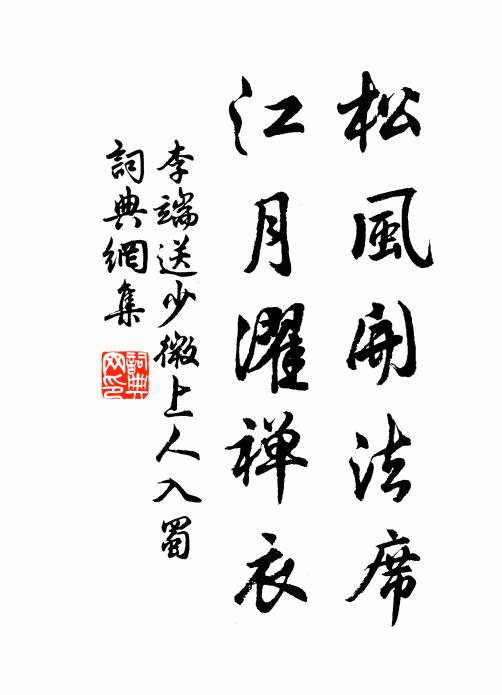 松風開法席
江月濯禅衣
李端送少微上人入蜀
詞典網集
詞典网印